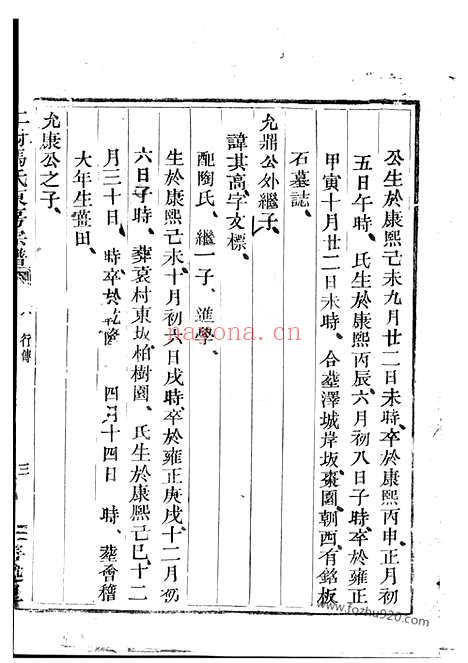 公生於康熙己未九月廿二日未時、卒於康熙丙申正月初
五日午時、氏生於康熙丙辰六月初八日子時、卒於雍正
甲寅十月廿二日未時、合塟澤城岸坂棗園、朝西有銘板
石墓誌、
允鼎公外繼子、
諱其高、字文標、
配陶氏、繼一子、進學、
生於康熙己未十月初六日戌時、卒於雍正庚戌十二月初
六日子時、葬袁村東坂柏樹園、氏生於康熙己巳十二
月三十日 時、卒於乾隆 四月十四日 時、葬會稽
大年生薑田、
允康公之子、
馮氏東房宗譜
八 行傳
三
nayona.cn
www.fozhu920.com